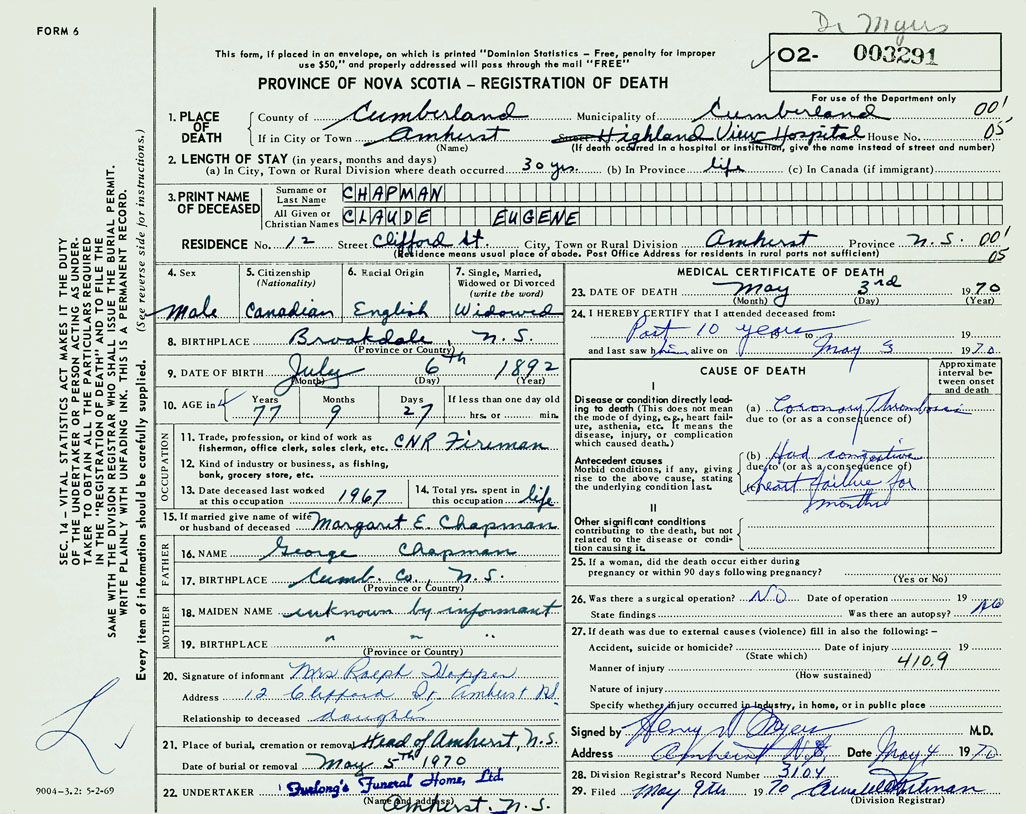 FORM 6
Dr Myers
This form, if placed in an envelope, on which is printed "Dominion Statistics – Free, penalty for improper
use $50," and properly addressed will pass through the mail "FREE"
PROVINCE OF NOVA SCOTIA – REGISTRATION OF DEATH
O2- 003291
For use of the Department only
1. PLACE OF DEATH
County of Cumberland Municipality of Cumberland 00'
If in City or Town Amherst Street Highland View Hospital House No. 05
(Name) (If death occurred in a hospital or institution, give the name instead of street and number)
2. LENGTH OF STAY (in years, months and days)
(a) In City, Town or Rural Division where death occurred 30 yrs. (b) In Province life (c) In Canada (if immigrant)
3. PRINT NAME OF DECEASED
Surname or Last Name CHAPMAN
All Given or Christian Names CLAUDE EUGENE
RESIDENCE No. 12 Street Clifford St. City, Town or Rural Division Amherst Province N.S. 00'
(Residence means usual place of abode. Post Office Address for residents in rural parts not sufficient) 05
4. Sex
Male
5. Citizenship
(Nationality)
Canadian
6. Racial Origin
English
7. Single, Married,
Widowed or Divorced
(write the word)
Widowed
8. BIRTHPLACE Brookdale, N.S.
(Province or Country)
9. DATE OF BIRTH July 6th 1892
(Month) (Day) (Year)
10. AGE in Years Months Days If less than one day old
77 9 27 hrs. or min.
OCCUPATION
11. Trade, profession, or kind of work as
fisherman, office clerk, sales clerk, etc. CNR Fireman
12. Kind of industry or business, as fishing,
bank, grocery store, etc.
13. Date deceased last worked
at this occupation 1967
14. Total yrs. spent in
this occupation life
15. If married give name of wife
or husband of deceased Margaret E. Chapman
FATHER
16. NAME George Chapman
17. BIRTHPLACE Cumb. Co., N.S.
(Province or Country)
MOTHER
18. MAIDEN NAME unknown by informant
19. BIRTHPLACE " " "
(Province or Country)
20. Signature of informant Mrs Ralph
Address 12 Clifford St. Amherst NS
Relationship to deceased daughter
21. Place of burial, cremation or removal Head of Amherst, N.S.
Date of burial or removal May 5th 1970
22. UNDERTAKER Furlong's Funeral Home, Ltd.
(Name and address)
Amherst, N.S.
MEDICAL CERTIFICATE OF DEATH
23. DATE OF DEATH May 3rd 1970
(Month) (Day) (Year)
24. I HEREBY CERTIFY that I attended deceased from:
Past 10 years to 19
and last saw him alive on May 3 1970
CAUSE OF DEATH
Approximate
interval be-
tween onset
and death
I
Disease or condition directly lead-
ing to death (This does not mean
the mode of dying, e.g., heart fail-
ure, asthenia, etc. It means the
disease, injury, or complication
which caused death.)
(a) Coronary Thrombosis
due to (or as a consequence of)
Antecedent causes
Morbid conditions, if any, giving
rise to the above cause, stating
the underlying condition last.
(b) Had congestive
due to (or as a consequence of)
(c) heart failure for
months
II
Other significant conditions
contributing to the death, but not
related to the disease or condi-
tion causing it.
25. If a woman, did the death occur either during
pregnancy or within 90 days following pregnancy?
(Yes or No)
26. Was there a surgical operation? No Date of operation 19
State findings Was there an autopsy? No
27. If death was due to external causes (violence) fill in also the following: –
Accident, suicide or homicide? Date of injury 19
(State which) 410.9
Manner of injury
(How sustained)
Nature of injury
Specify whether injury occurred in industry, in home, or in public place
Signed by Henry D Myers M.D.
Address Amherst N.S. Date May 4 1970
28. Division Registrar's Record Number 3104
29. Filed May 9th 1970
(Division Registrar)
SEC. 14 – VITAL STATISTICS ACT MAKES IT THE DUTY
OF THE UNDERTAKER OR PERSON ACTING AS UNDER-
TAKER TO OBTAIN ALL THE PARTICULARS REQUIRED
IN THE "REGISTRATION OF DEATH" AND TO FILE THE
SAME WITH THE DIVISION REGISTRAR WHO SHALL ISSUE THE BURIAL PERMIT.
WRITE PLAINLY WITH UNFADING INK. THIS IS A PERMANENT RECORD.
Every item of information should be carefully supplied. (See reverse side for instructions.)
9004-3.2: 5-2-69